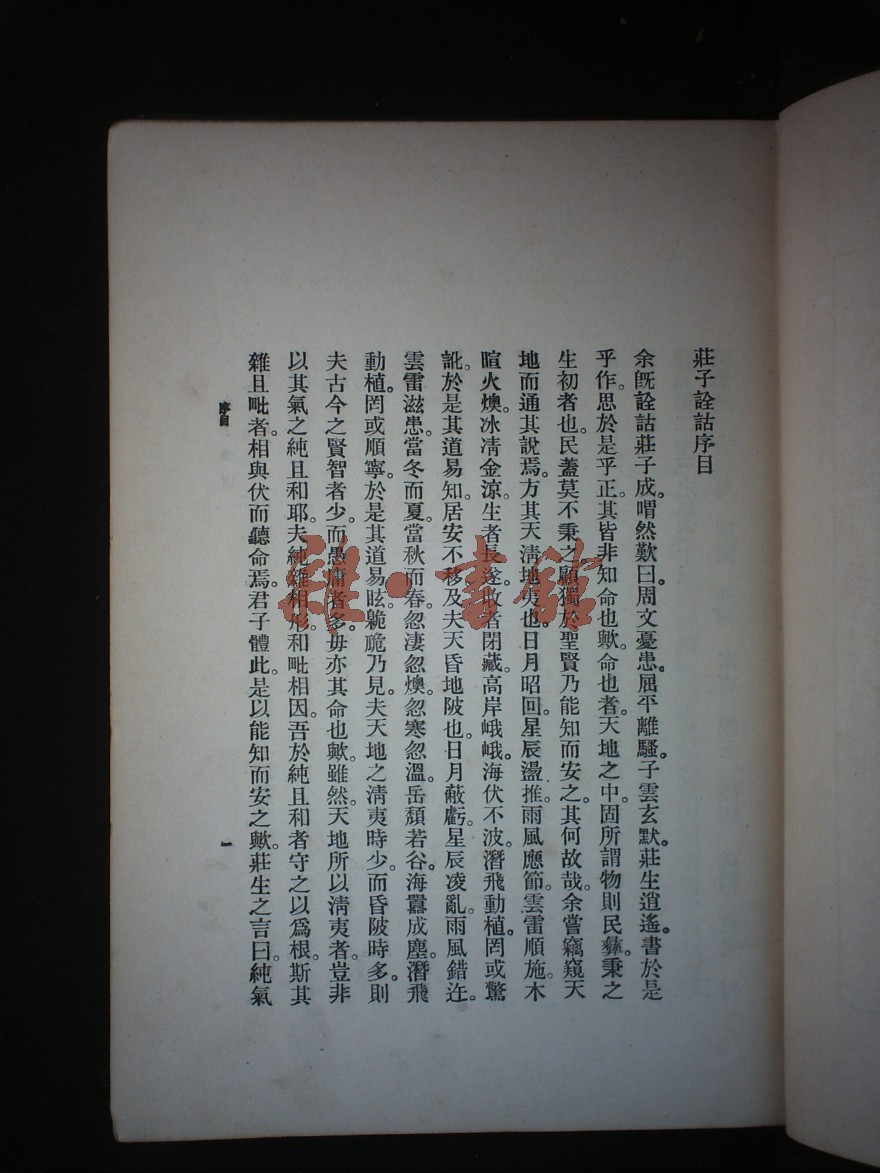 莊子詮詁序目
余旣詮詁莊子成。喟然歎曰。周文憂患。屈平離騷。子雲玄默。莊生逍遙。書於是
乎作。思於是乎正。其皆非知命也歟。命也者。天地之中。固所謂物則民彝。秉之
生初者也。民蓋莫不秉之。顧獨於聖賢乃能知而安之。其何故哉。余嘗竊窺天
地而通其說焉。方其天淸地夷也。日月昭回。星辰盪推。雨風應節。雲雷順施。木
暄火燠。冰凊金涼。生者長遂。收者閉藏。高岸峨峨。海伏不波。潛飛動植。罔或驚
訛。於是其道易知。居安不移。及夫天昏地陂也。日月蔽虧。星辰凌亂。雨風錯迕。
雲雷滋患。當冬而夏。當秋而春。忽淒忽燠。忽寒忽溫。岳頹若谷。海囂成塵。潛飛
動植。罔或順寧。於是其道易眩。臲卼乃見。夫天地之淸夷時少。而昏陂時多。則
夫古今之賢智者少。而愚庸者多。毋亦其命也歟。雖然。天地所以淸夷者。豈非
以其氣之純且和耶。夫純雜相形。和毗相因。吾於純且和者守之以爲根。斯其
雜且毗者。相與伏而聽命焉。君子體此。是以能知而安之歟。莊生之言曰。純氣
序目
一
雜·書館